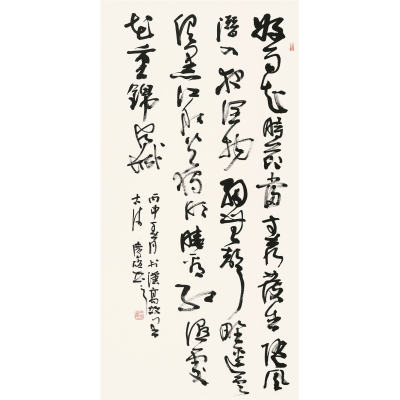 好雨知時節當春乃發生隨風
潛入夜潤物細無聲野徑雲
俱黑江船火獨明曉看紅濕處
花重錦官城
丙申月於漢高故里